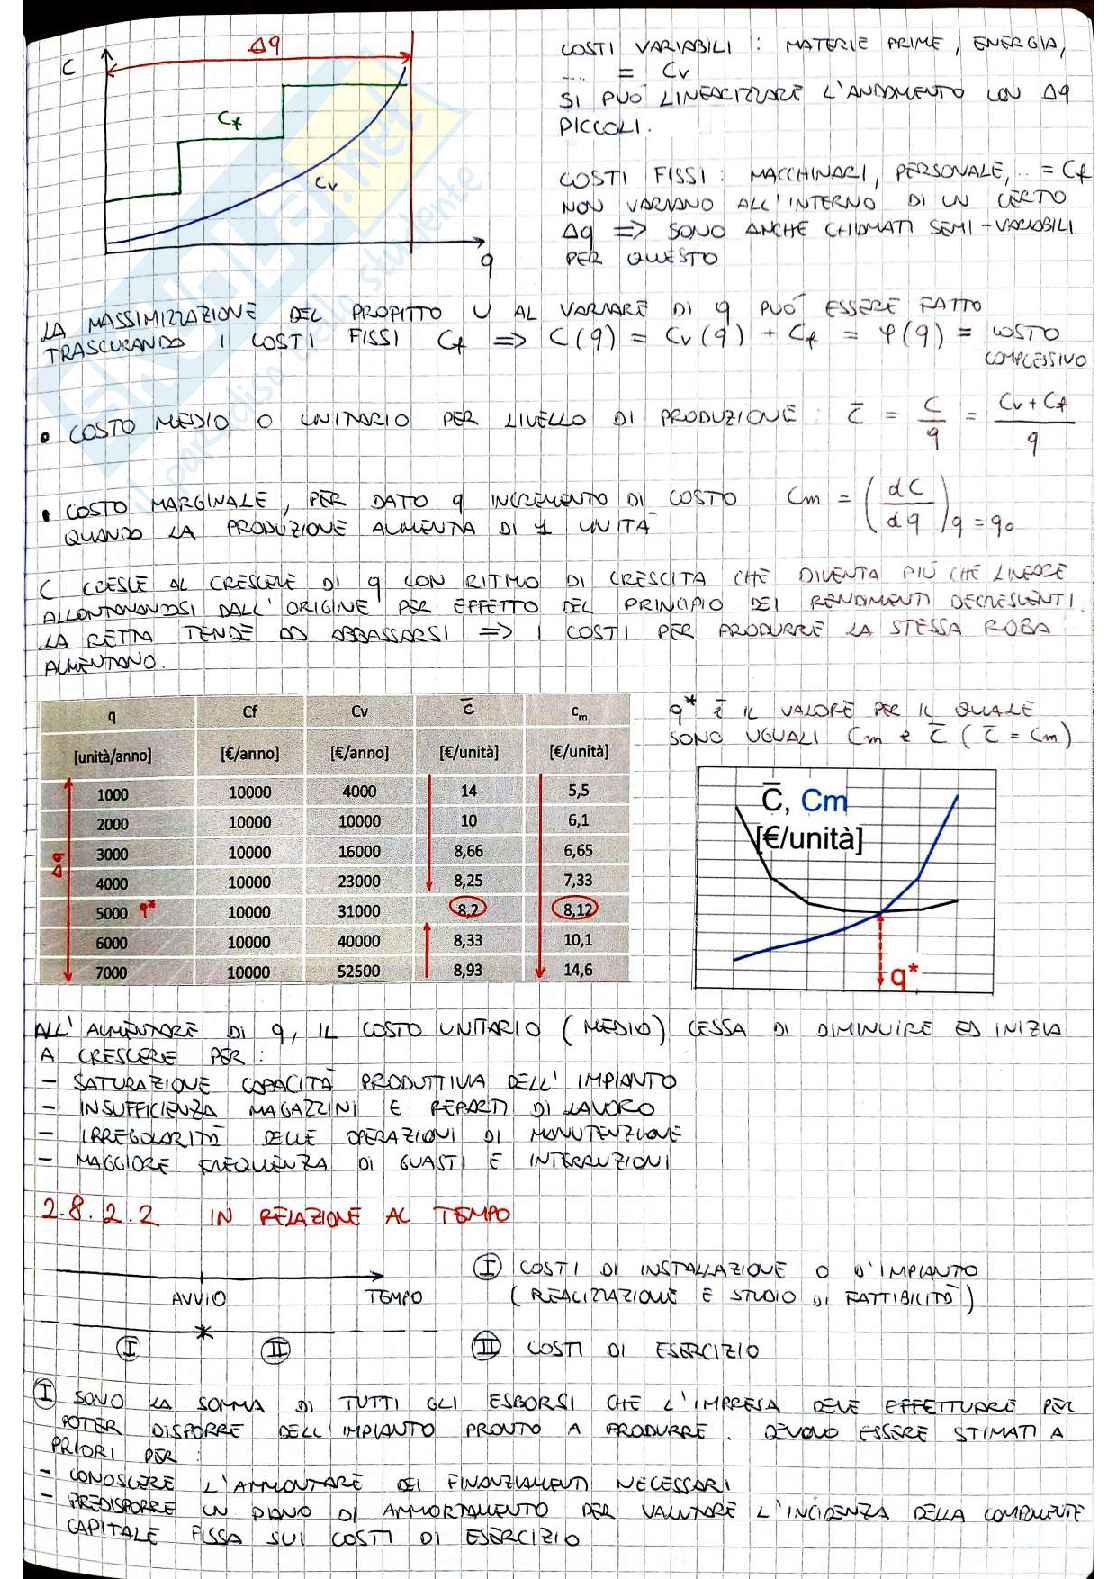 Δq
C
Cf
Cv
q
COSTI VARIABILI : MATERIE PRIME, ENERGIA,
... = Cv
SI PUÒ LINEARIZZARE L'ANDAMENTO CON Δq
PICCOLI.
COSTI FISSI : MACCHINARI, PERSONALE, ... = Cf
NON VARIANO ALL'INTERNO DI UN CERTO
Δq => SONO ANCHE CHIAMATI SEMI-VARIABILI
PER QUESTO
LA MASSIMIZZAZIONE DEL PROFITTO U AL VARIARE DI q PUÓ ESSERE FATTO
TRASCURANDO I COSTI FISSI Cf => C(q) = Cv(q) + Cf = φ(q) = COSTO
COMPLESSIVO
• COSTO MEDIO O UNITARIO PER LIVELLO DI PRODUZIONE : c̄ = C/q = (Cv + Cf)/q
• COSTO MARGINALE, PER DATO q INCREMENTO DI COSTO Cm = (dC/dq) q=q0
QUANDO LA PRODUZIONE AUMENTA DI 1 UNITÀ
C CRESCE AL CRESCERE DI q CON RITMO DI CRESCITA CHE DIVENTA PIÙ CHE LINEARE
ALLONTANANDOSI DALL'ORIGINE PER EFFETTO DEL PRINCIPIO DEI RENDIMENTI DECRESCENTI.
LA RETTA TENDE AD ABBASSARSI => I COSTI PER PRODURRE LA STESSA ROBA
AUMENTANO.
q Cf Cv c̄ cm
[unità/anno] [€/anno] [€/anno] [€/unità] [€/unità]
1000 10000 4000 14 5,5
2000 10000 10000 10 6,1
3000 10000 16000 8,66 6,65
4000 10000 23000 8,25 7,33
5000 q* 10000 31000 8,2 8,12
6000 10000 40000 8,33 10,1
7000 10000 52500 8,93 14,6
Δq
q* È IL VALORE PER IL QUALE
SONO UGUALI Cm e C̄ (C̄ = Cm)
C̄, Cm
[€/unità]
q*
ALL'AUMENTARE DI q, IL COSTO UNITARIO (MEDIO) CESSA DI DIMINUIRE ED INIZIA
A CRESCERE PER :
- SATURAZIONE CAPACITÀ PRODUTTIVA DELL'IMPIANTO
- INSUFFICIENZA MAGAZZINI E REPARTI DI LAVORO
- IRREGOLARITÀ DELLE OPERAZIONI DI MANUTENZIONE
- MAGGIORE FREQUENZA DI GUASTI E INTERRUZIONI
2.8.2.2 IN RELAZIONE AL TEMPO
AVVIO TEMPO
I II
I COSTI DI INSTALLAZIONE O D'IMPIANTO
(REALIZZAZIONE E STUDIO DI FATTIBILITÀ)
II COSTI DI ESERCIZIO
I SONO LA SOMMA DI TUTTI GLI ESBORSI CHE L'IMPRESA DEVE EFFETTUARE PER
POTER DISPORRE DELL'IMPIANTO PRONTO A PRODURRE. DEVONO ESSERE STIMATI A
PRIORI PER :
- CONOSCERE L'AMMONTARE DEI FINANZIAMENTI NECESSARI
- PREDISPORRE UN PIANO DI AMMORTAMENTO PER VALUTARE L'INCIDENZA DELLA COMPONENTE
CAPITALE FISSA SUI COSTI DI ESERCIZIO